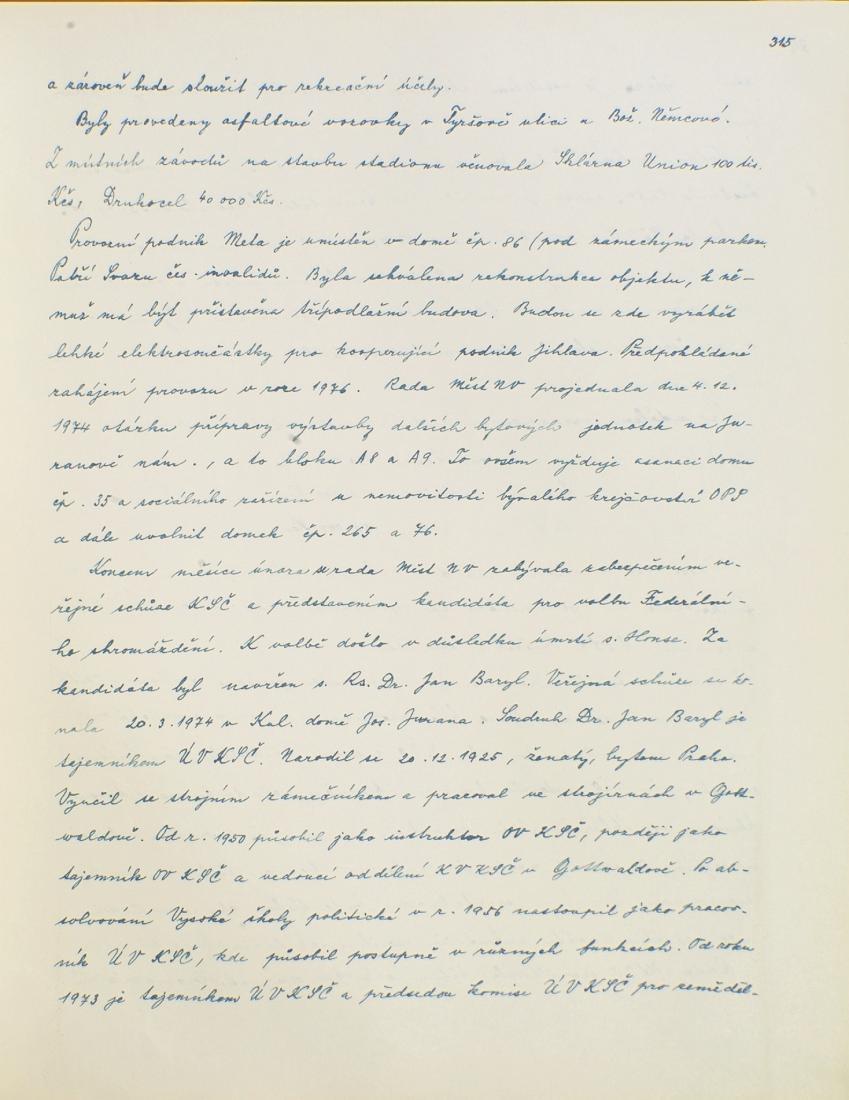 315
a zároveň bude sloužit pro rekreační účely.
Byly provedeny asfaltové vozovky v Tyršově ulici a Bož. Němcové.
Z místních závodů na stavbu stadionu věnovala Sklárna Union 100 tis.
Kčs, Druhocel 40 000 Kčs.
Provozní podnik Meta je umístěn v domě čp. 86 (pod zámeckým parkem.
Patří Svazu čes. invalidů. Byla schválena rekonstrukce objektu, k ně-
muž má být přistavěna třípodlažní budova. Budou se zde vyrábět
lehké elektrosoučástky pro kooperující podnik Jihlava. Předpokládané
zahájení provozu v roce 1976. Rada Měst NV projednala dne 4. 12.
1974 otázku přípravy výstavby dalších bytových jednotek na Ju-
ranově nám., a to bloku A8 a A9. To ovšem vyžduje asanaci domu
čp. 35 a sociálního zařízení u nemovitosti bývalého krejčovství OPP
a dále uvolnit domek čp. 265 a 76.
Koncem měsíce února rada Měst NV zabývala zabezpečením ve-
řejné schůze KSČ a představením kandidáta pro volbu Federální-
ho shromáždění. K volbě došlo v důsledku úmrtí s. Honse. Za
kandidáta byl navržen s. Rs. Dr. Jan Baryl. Veřejná schůze se ko-
nala 20. 3. 1974 v Kul. domě Jos. Jurana. Soudruh Dr. Jan Baryl je
tajemníkem ÚV KSČ. Narodil se 20. 12. 1925, ženatý, bytem Praha.
Vyučil se strojním zámečníkem a pracoval ve strojírnách v Gott-
waldově. Od r. 1950 působil jako instruktor OV KSČ, později jako
tajemník OV KSČ a vedoucí oddělení KV KSČ v Gottwaldově. Po ab-
solvování Vysoké školy politické v r. 1956 nastoupil jako pracov-
ník ÚV KSČ, kde působil postupně v různých funkcích. Od roku
1973 je tajemníkem ÚV KSČ a předsedou komise ÚV KSČ pro zeměděl-